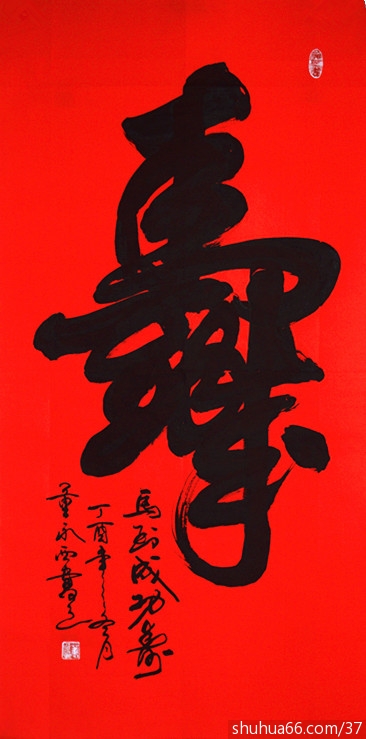 壽
馬到成功壽
丁酉年之冬月
董永西書
shuhua66.com/37